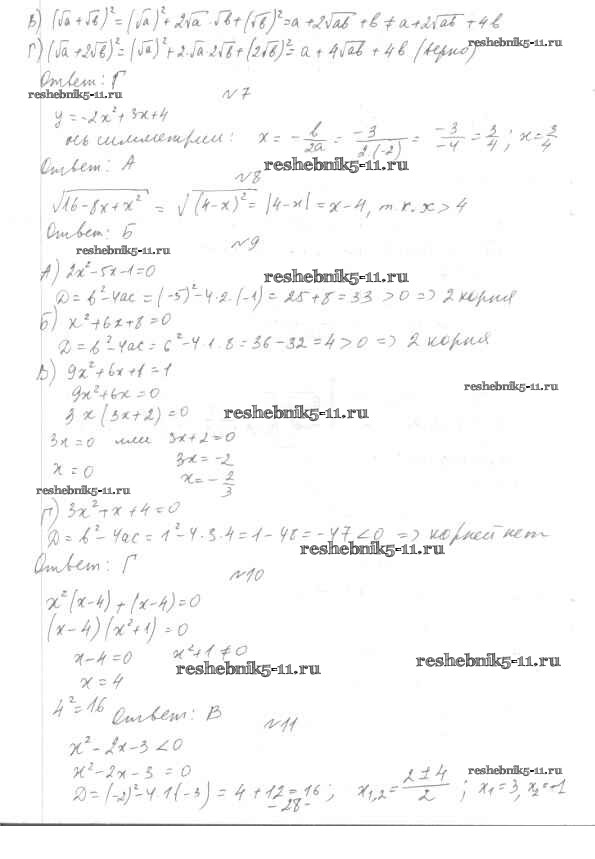 В) (√a+√b)² = (√a)² + 2√a·√b + (√b)² = a + 2√ab + b ≠ a + 2√ab + 4b
reshebnik5-11.ru
Г) (√a+2√b)² = (√a)² + 2·√a·2√b + (2√b)² = a + 4√ab + 4b (верно)
Ответ: Г
reshebnik5-11.ru
№7
y = -2x² + 3x + 4
ось симметрии: x = -b/2a = -3/2·(-2) = -3/-4 = 3/4; x = 3/4
reshebnik5-11.ru
Ответ: А
№8
√16-8x+x² = √(4-x)² = |4-x| = x-4, т.к. x > 4
Ответ: Б
reshebnik5-11.ru
№9
А) 2x²-5x-1=0
reshebnik5-11.ru
D = b²-4ac = (-5)²-4·2·(-1) = 25+8 = 33 > 0 => 2 корня
Б) x²+6x+8=0
D = b²-4ac = 6²-4·1·8 = 36-32 = 4 > 0 => 2 корня
В) 9x²+6x+1=1
reshebnik5-11.ru
9x²+6x=0
3x(3x+2)=0
reshebnik5-11.ru
3x=0 или 3x+2=0
3x=-2
x=0
x=-2/3
reshebnik5-11.ru
Г) 3x²+x+4=0
D = b²-4ac = 1²-4·3·4 = 1-48 = -47 < 0 => корней нет
reshebnik5-11.ru
Ответ: Г
№10
x²(x-4)+(x-4)=0
(x-4)(x²+1)=0
x-4=0 x²+1≠0
reshebnik5-11.ru
reshebnik5-11.ru
x=4
4²=16 Ответ: В
№11
x²-2x-3<0
x²-2x-3=0
reshebnik5-11.ru
D = (-2)²-4·1(-3) = 4+12 = 16; x1,2 = 2±4/2; x1=3, x2=-1
-28-